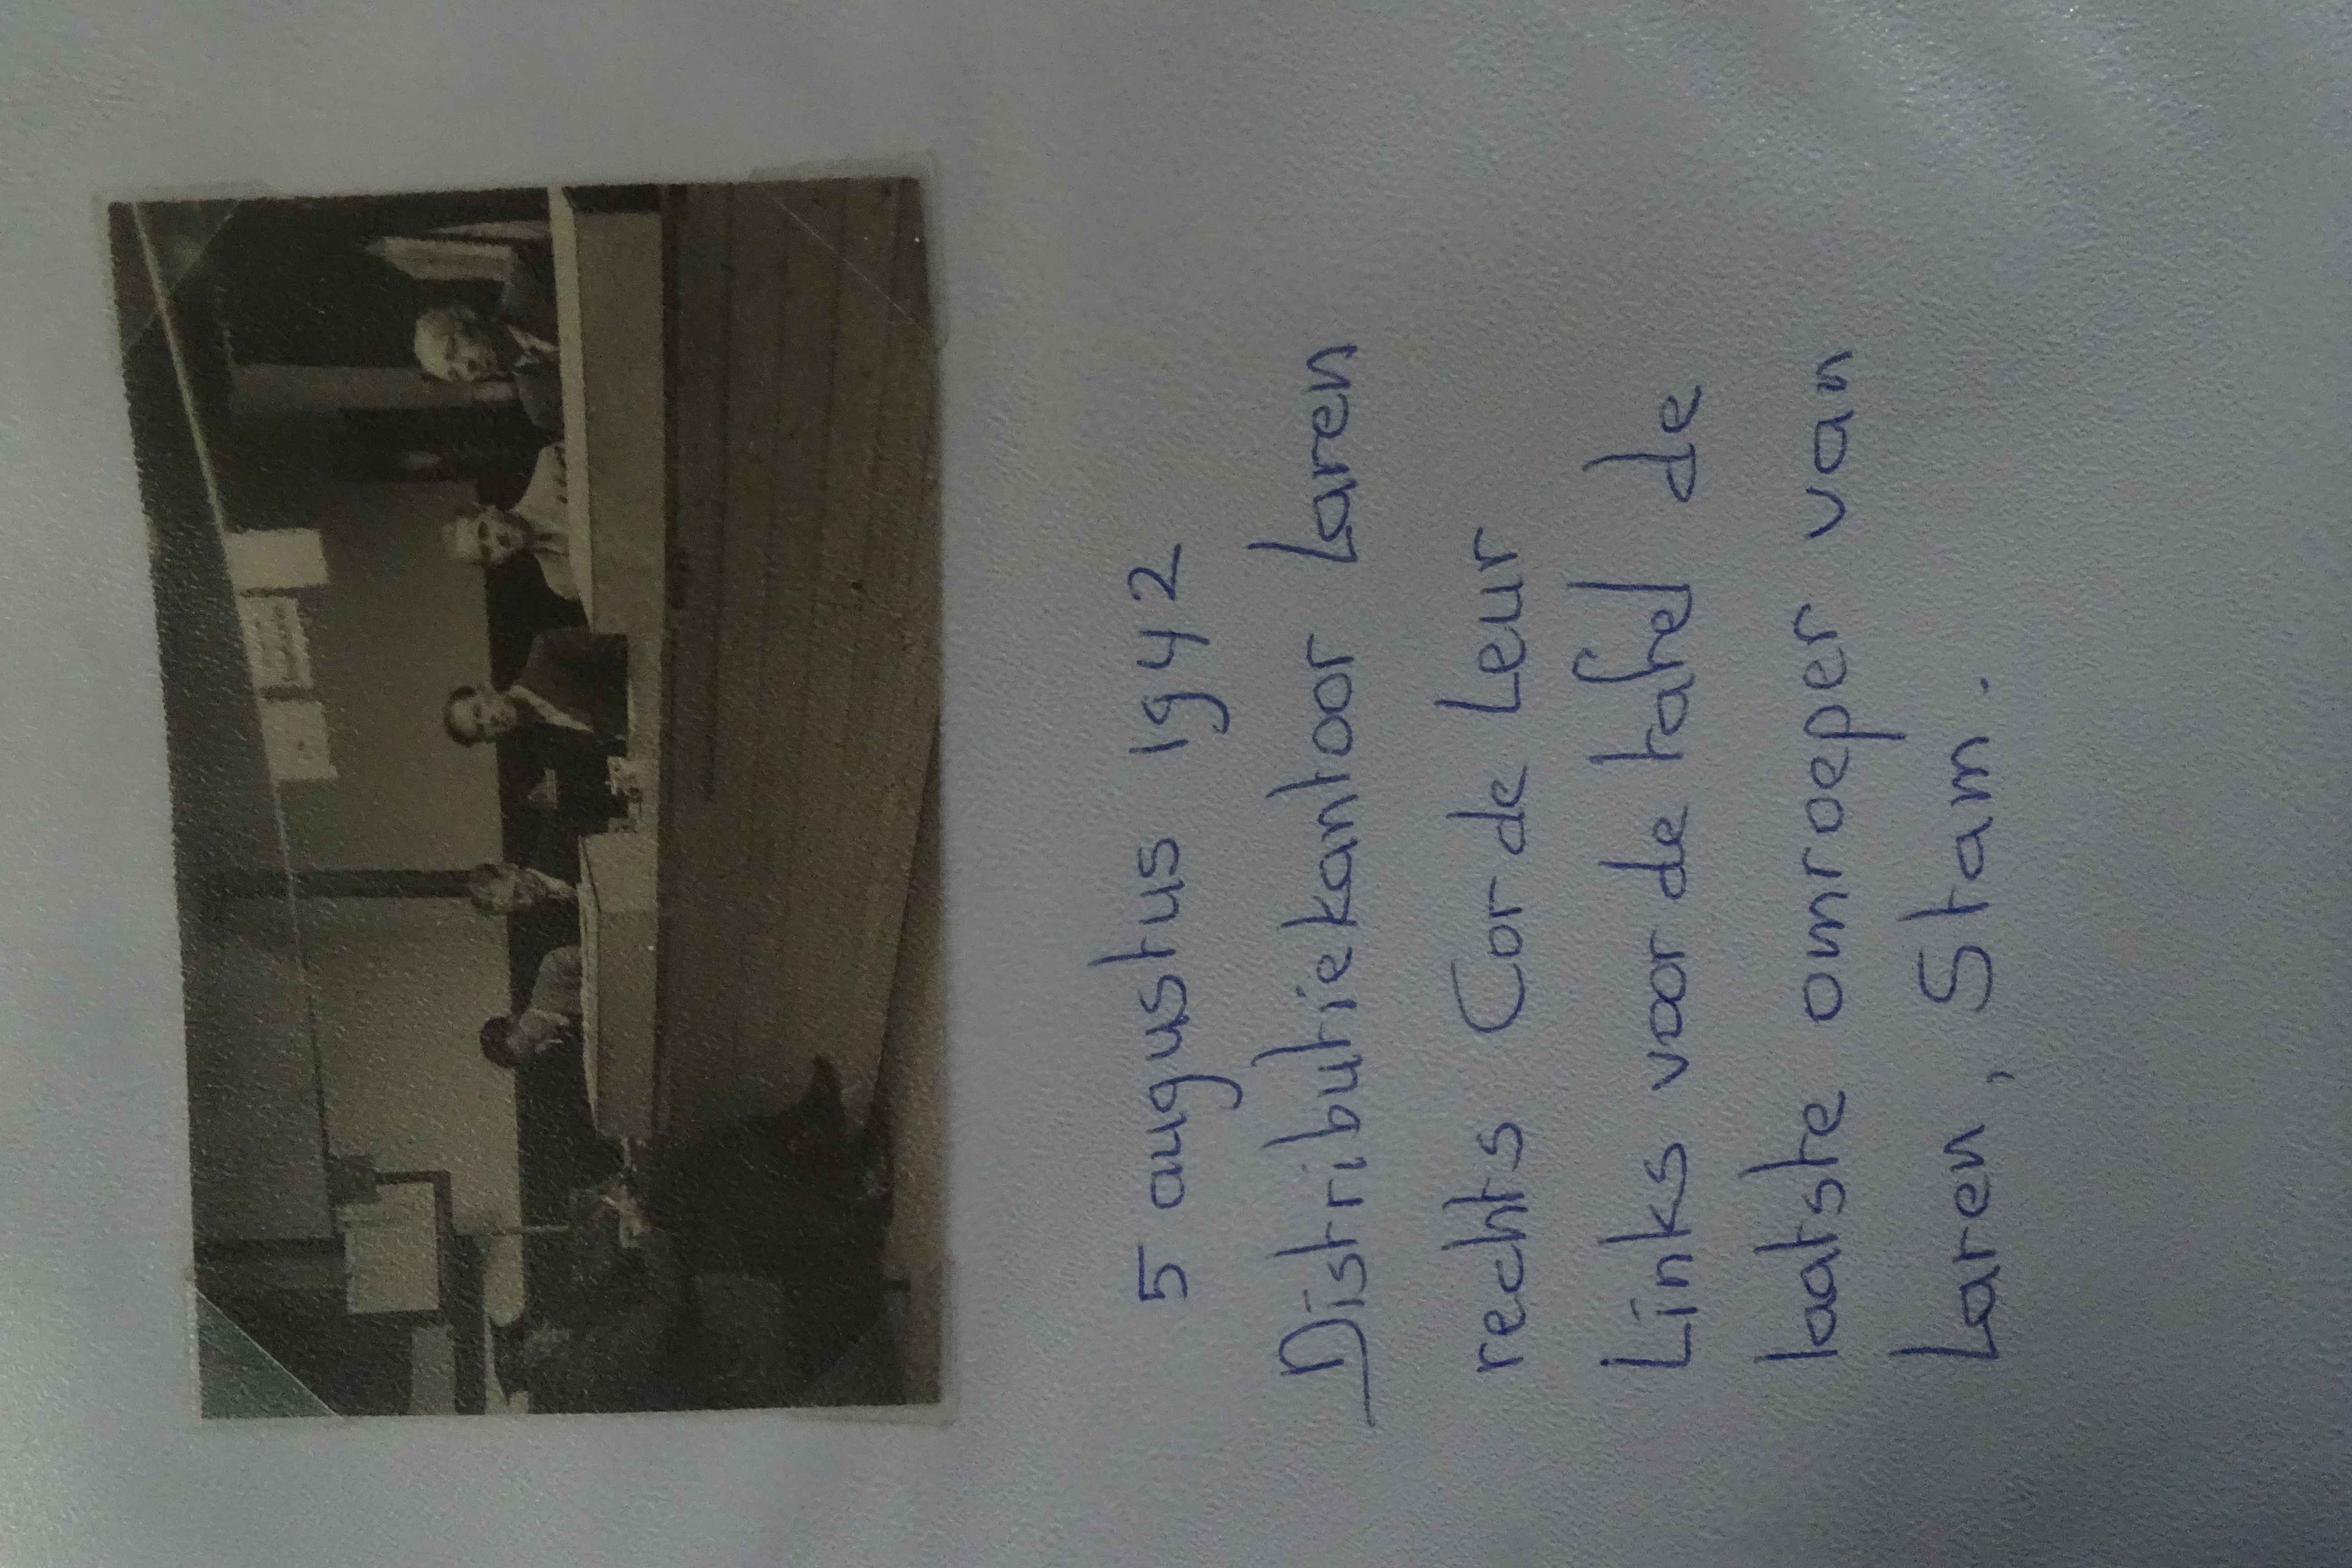 5 augustus 1942
Distributiekantoor Laren
rechts Cor de Leur
Links voor de tafel de
laatste omroeper van
Laren, Stam.